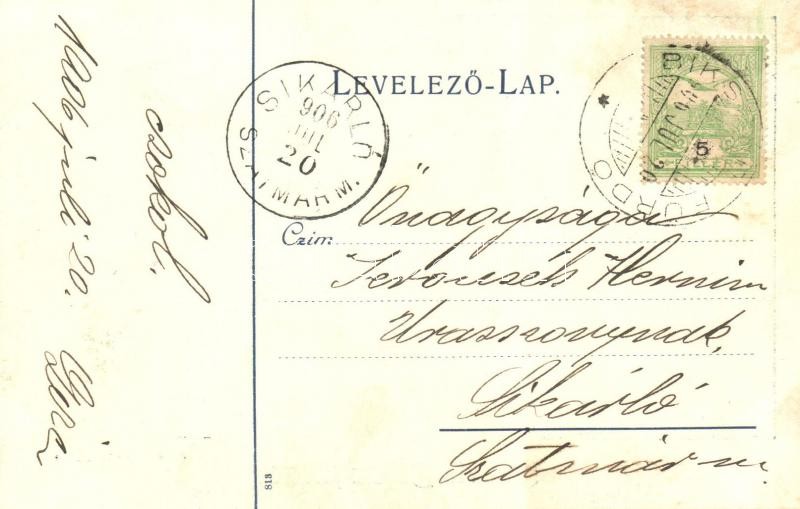 LEVELEZŐ-LAP.
SIKÁRLÓ
906
JUL
20
SZATMÁR M.
BIKSZ
906 JUL 20
FÜRDŐ
5
FILLÉR
Czím:
Őnagysága
Hermin
Urasszonynak,
Sikárló
Szatmár m.
1906 juli 20.
csokol.
813